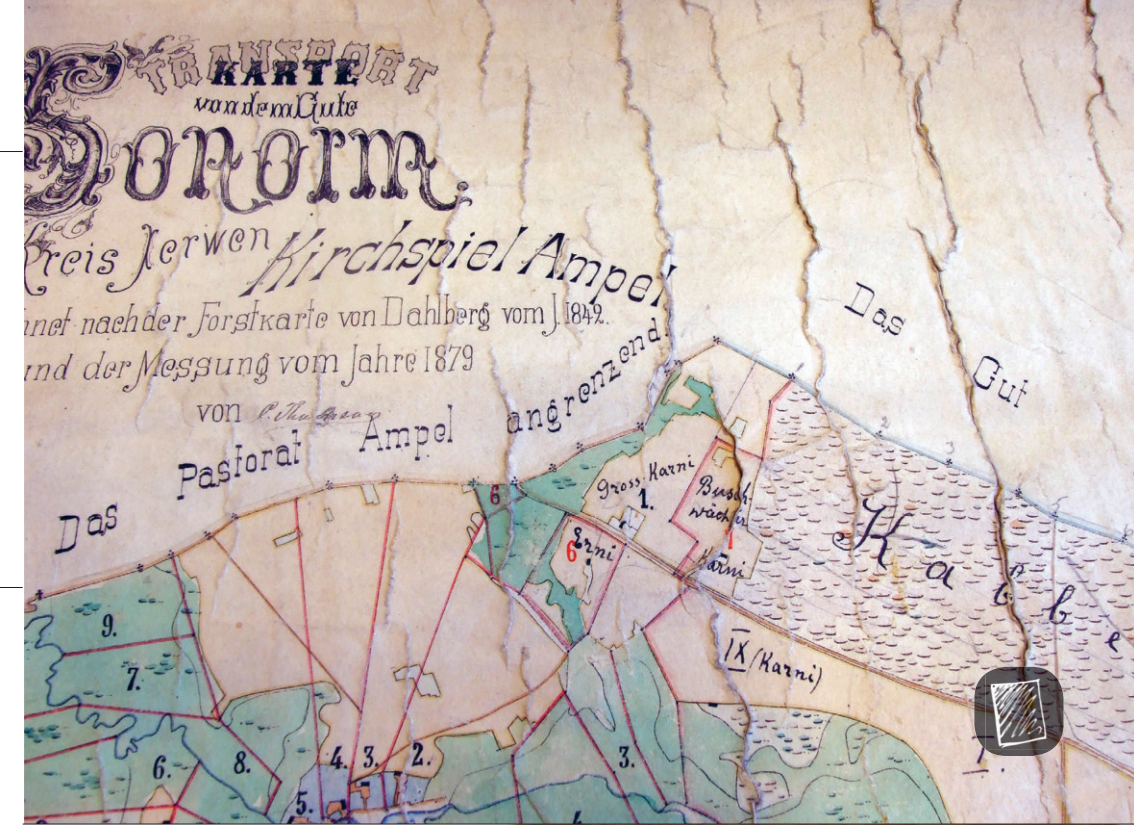 TRANSPORT
KARTE
von dem Gute
Sonorm.
Kreis Jerwen Kirchspiel Ampel
hnet nach der Forstkarte von Dahlberg vom J. 1842.
und der Messung vom Jahre 1879
von
Das Pastorat Ampel angrenzend.
Das Gut
Gross. Karni
1.
Busch
wächter
I
Karni
6
Erni
6
K a b b e
IX (Karni)
I.
9.
7.
6.
8.
5.
4.
3.
2.
3.
1
2
3
5
6